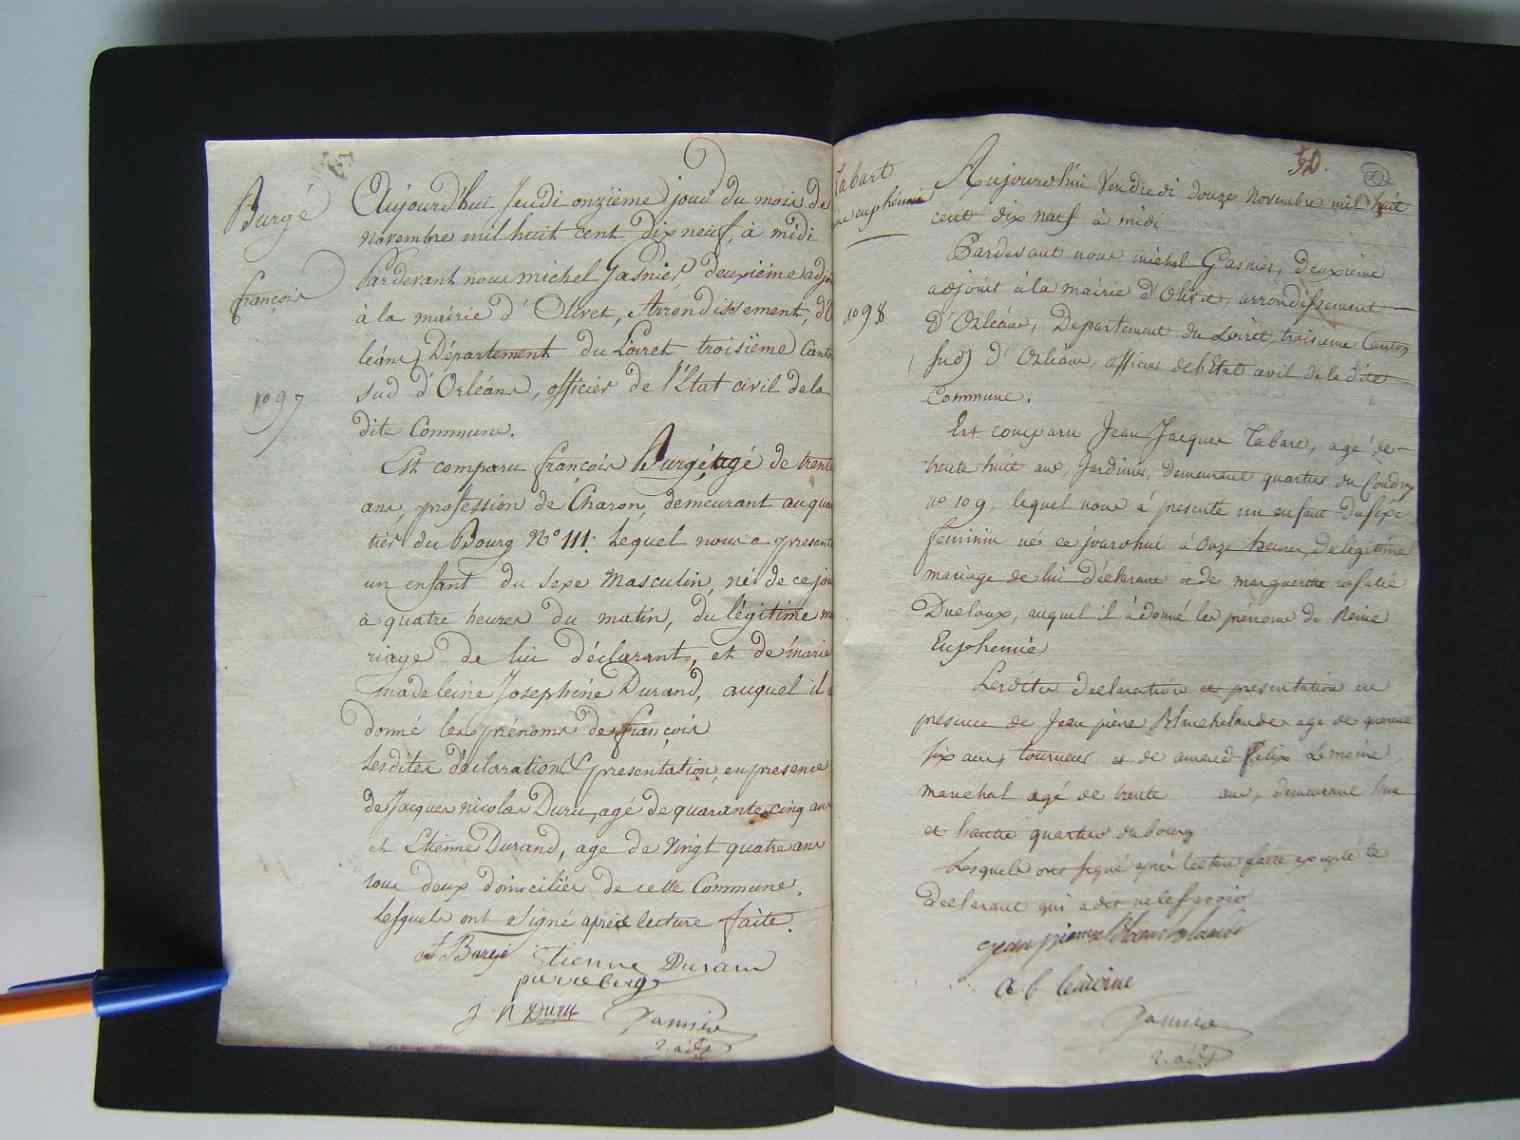 Burgé
françois
no 97
Aujourd'hui Jeudi onzième jour du mois de
novembre mil huit cent dix neuf, à midi
Pardevant nous michel Gasnier, deuxième adjoi
à la mairie d'Olivet, Arrondissement, d'O
léans, Département du Loiret troisième Canto
sud d'Orléans, officier de l'État civil de la
dite Commune.
Est comparu françois Burgé, agé de trente
ans, profession de Charon, demeurant au quar
tier du Bourg No 111: Lequel nous a présenté
un enfant du sexe Masculin, nés de ce jour
à quatre heures du matin, du légitime ma
riage de lui déclarant, et de marie
madeleine Josephine Durand, auquel il a
donné les prénoms de françois
Lesdites déclaration & presentation, en presence
de Jacques nicolas Duru, agé de quarante cinq ans
et Etienne Durand, age de Vingt quatre ans
tous deux domiciliés de cette Commune.
Lesquels ont signé après lecture faite.
f Burgé Etienne Durand
pierre berge
j. n Duru Gasnier
2. adjt
50.
Tabart
euphémie
no 98
Aujourd'hui Vendredi douze Novembre mil huit
cent dix neuf à midi
Pardevant nous michel Gasnier, deuxième
adjoint à la mairie d'Olivet, arrondissement
d'Orléans, Departement du Loiret, troisième Canton
(sud) d'Orléans, officier de l'Etat civil de la dite
Commune.
Est comparu Jean Jacques Tabart, agé de
trente huit ans, Jardinier, demeurant quartier du Coudray
no 109, lequel nous à présenté un enfant du sexe
feminin nés ce jourdhui à onze heures, de légitime
mariage de lui déclarant et de marguerite rosalie
Ducloux, auquel il a donné les prénoms de Reine
Euphemie
Lesdites declaration et presentation en
présence de Jean pierre Blanchelande age de quarante
six ans, tourneur et de amand felix Lemoine
marechal agé de trente ans, demeurant l'un
et l'autre quartier du bourg
Lesquels ont signé après lecture faite excepté le
declarant qui a dit ne le savoir
jean pierre Blanchelande
a f lemoine
Gasnier
2. adjt